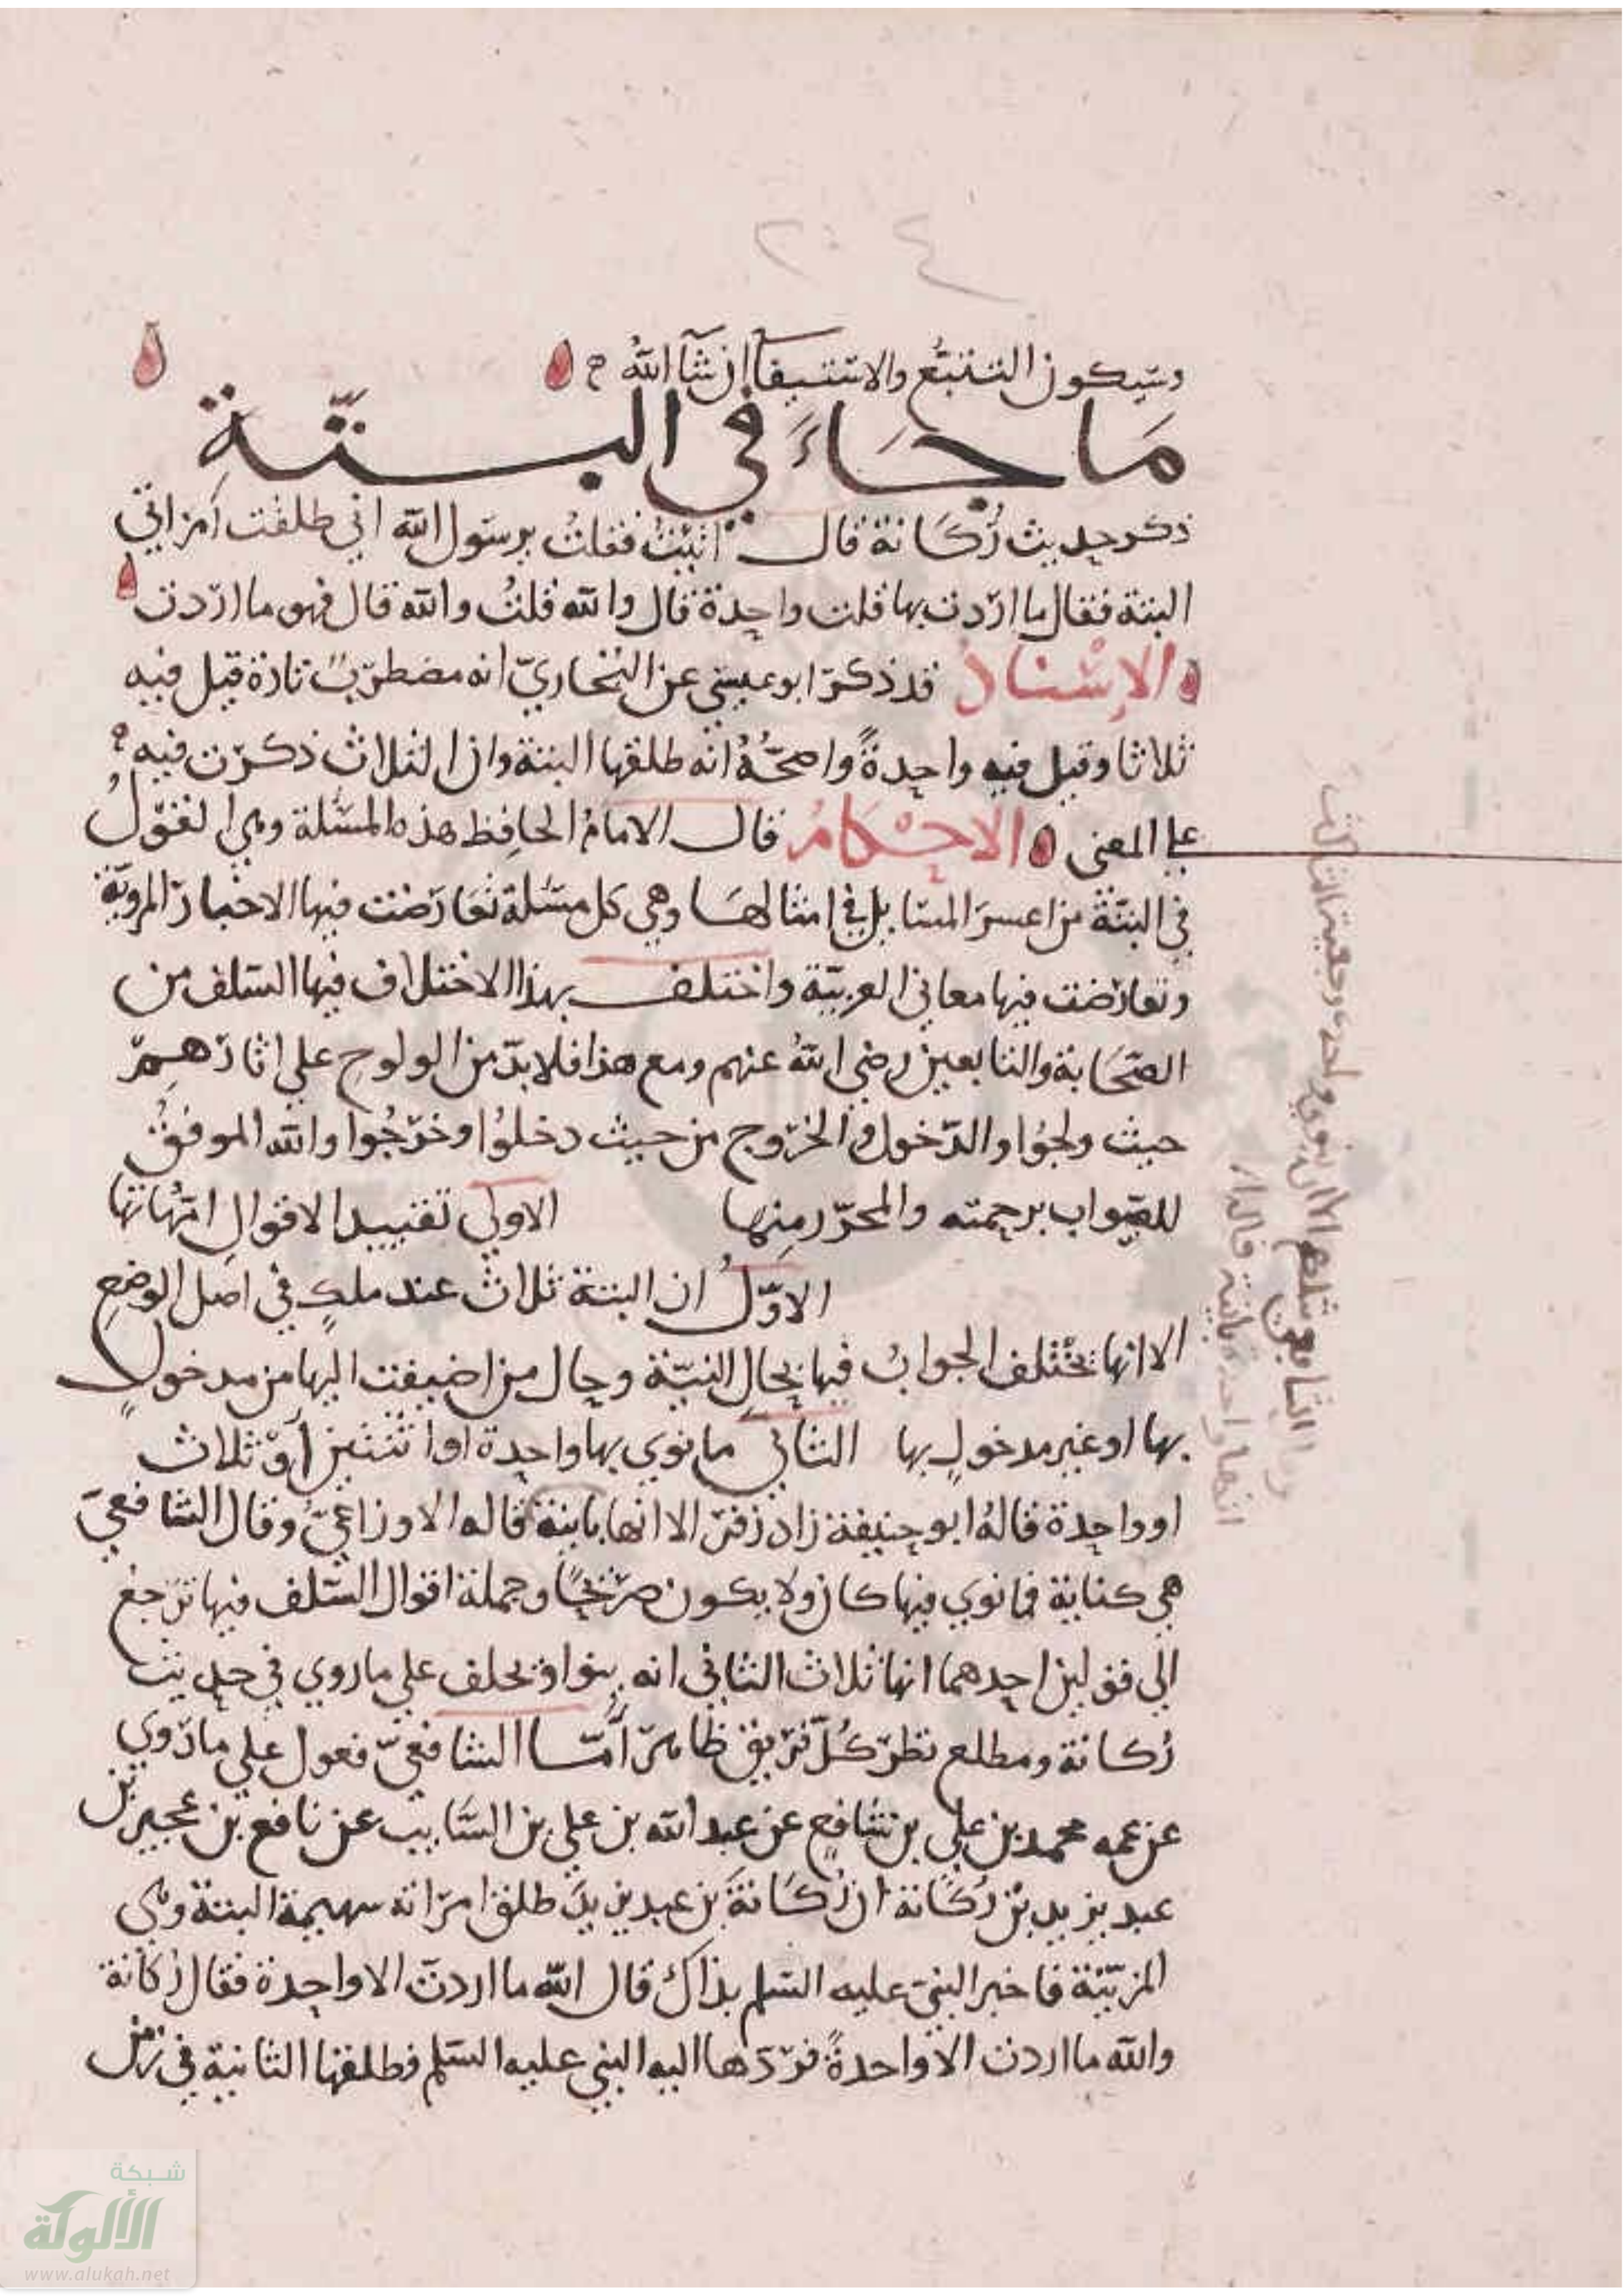 ٢٠٤
وسيكون التتبع والاستيفا ان شآ اللهُ
مَا جَاءَ في البتّة
ذكر حديث رُكَانة قال اتيتُ فقلتُ يرسول الله اني طلقت امراتي
البتة فقال ما اردت بها قلت واحدة قال والله قلتُ والله قال فهو ما اردت
الإسْناد قد ذكر ابو عيسى عن البُخاريّ انه مضطربٌ تارة قيل فيه
ثلاثا وقيل فيه واحدةً واصحُّهُ انه طلقها البتة وان الثلاث ذكرت فيه
على المعنى الاحْكامُ قال الامامُ الحافِظ هذه المسئلة وهي القولُ
في البتّة من اعسر المسايل في امثالهَا وهي كل مسَئلة تعَارَضت فيها الاخبار المرويّة
وتعارَضت فيها معاني العربيّة واختلف بهذا الاختلاف فيها السلف من
الصّحَابة والتابعين رضي اللهُ عنهم ومع هذا فلا بدّ من الولوج على اثارهِمْ
حيث ولجوُا والدّخول والخرُوج من حيث دخلوُا وخرَجُوا والله الموفقُ
للصّواب برحمته والمحرّر منها الاولى تقييد الاقوال امّهاتها
الاوّلُ ان البتة ثلاث عند ملكٍ في اصل الوضعِ
الا انها يختلف الجوابُ فيها بحالِ النيّة وحال من اضيفت اليها من مدخولٍ
بها او غير مدخولٍ بها الثاني ما نوي بها واحدة او اثنتين اوْ ثلاث
او واحدة قالهُ ابو حنيفة زاد زفر الا انها باينة قاله الاوزاعيُّ وقال الشافعيّ
هي كناية فما نوي فيها كان ولا يكون صرْيحًا وجملة اقوال السّلف فيها ترَجعُ
الى قولين احدهما انها ثلاث الثاني انه ينوا ويحلف على ما روي في حديث
رُكانة ومطلع نظر كُلّ فريق ظاهر أمّا الشافعيّ فعول على ما رَوي
عن عمه محمد بن علي بن شافعٍ عن عبد الله بن علي بن السَّايب عن نافع بن عجير بن
عبد يزيد بن رُكَانة ان رُكَانةَ بن عبد يزيدَ طلق امرَاته سهيمة البتة وهي
المزنيّة فاخبر النبيّ عليه السّلم بذاك قال الله ما اردتَ الا واحدة فقال رُكانة
والله ما اردت الا واحدةً فرَدّها اليه النبي عليه السّلم فطلقها الثانية في زمن
شبكة
الألوكة
www.alukah.net